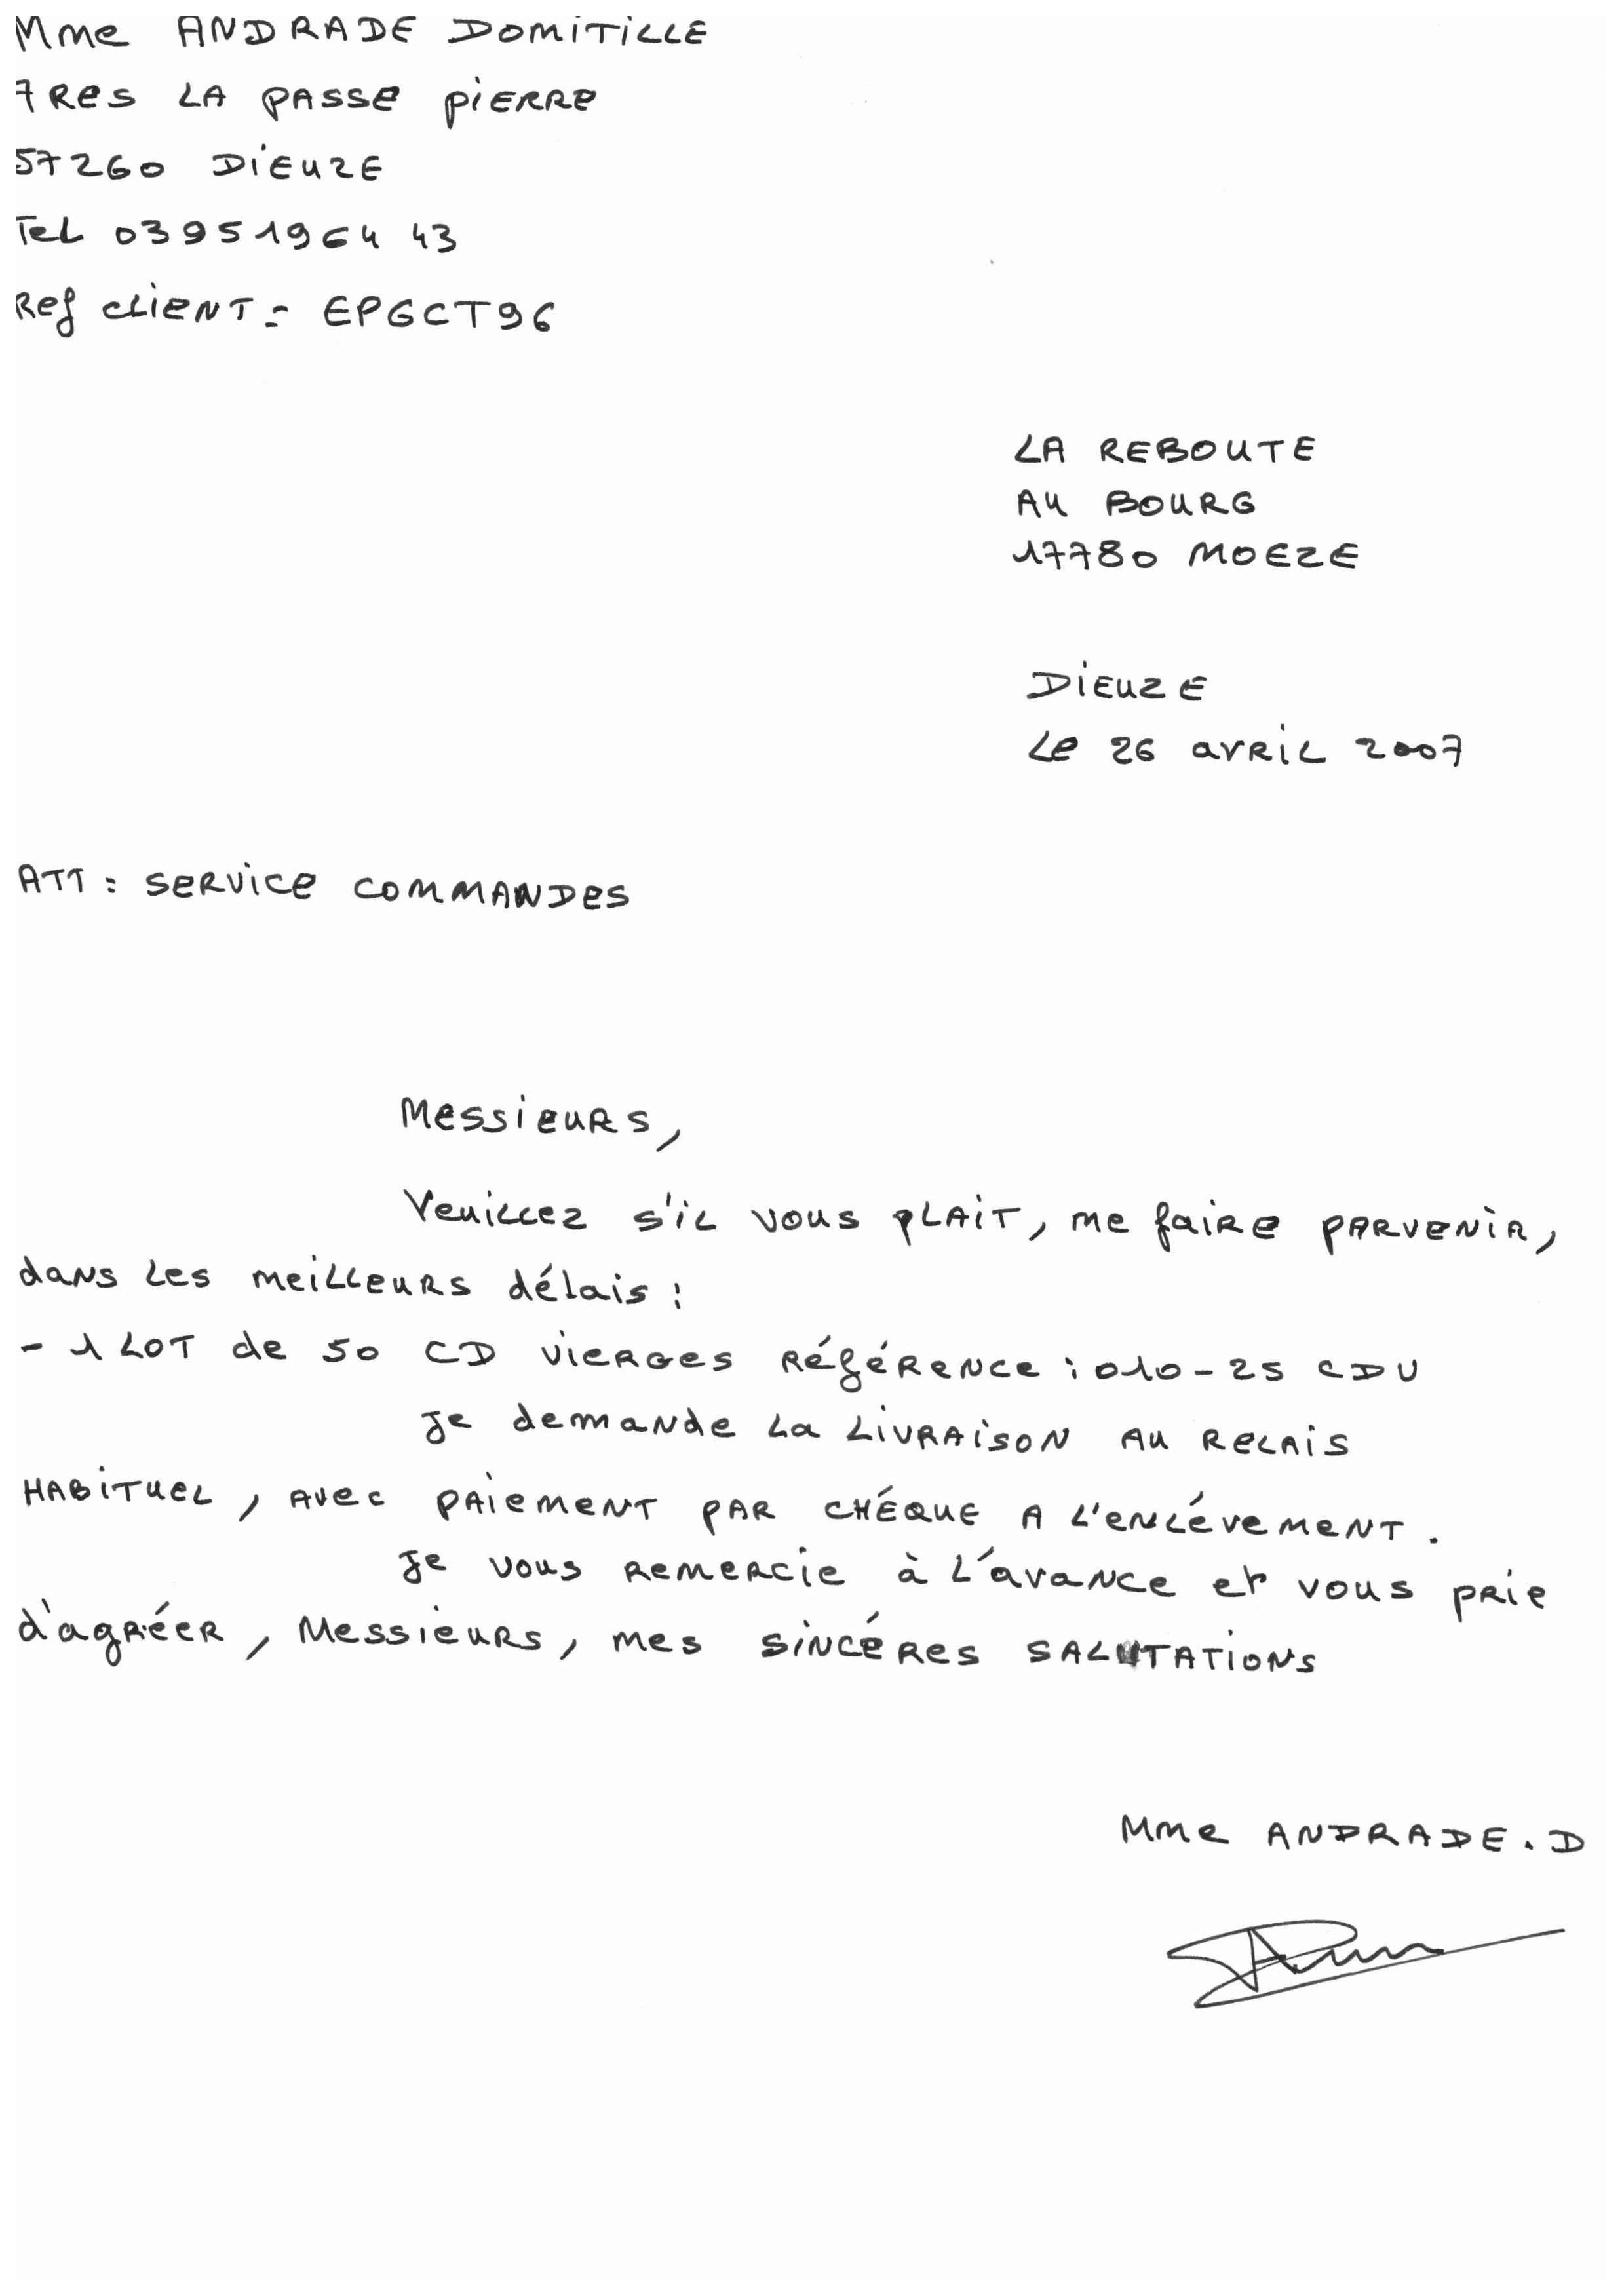 Mme ANDRADE DOMITILLE
7 Res LA PASSE PIERRE
57260 DIEUZE
Tel 03951964 43
Ref client = EPGCT96
LA REBOUTE
AU BOURG
17780 MOEZE
DIEUZE
Le 26 avril 2007
ATT : SERVICE COMMANDES
Messieurs,
Veuillez s'il vous plait, me faire parvenir,
dans les meilleurs délais :
- 1 LOT de 50 CD vierges Référence : 010-25 CDU
Je demande la livraison au relais
habituel, avec paiement par chéque a l'enlévement.
Je vous remercie à l'avance et vous prie
d'agréer, Messieurs, mes sincéres salutations
Mme ANDRADE.D